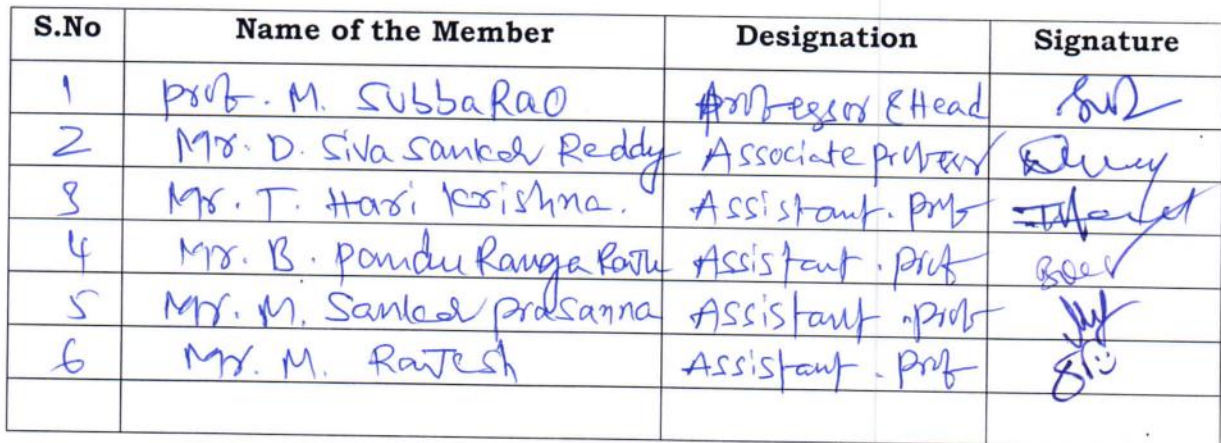 S.No Name of the Member Designation Signature
1 Prof. M. SubbaRao Professor & Head
2 Mr. D. Siva Sanker Reddy Associate professor
3 Mr. T. Hari Krishna. Assistant. Prof
4 Mr. B. Pandu Ranga Raju Assistant. Prof
5 Mr. M. Sanker Prasanna Assistant. Prof
6 Mr. M. Rajesh Assistant. Prof